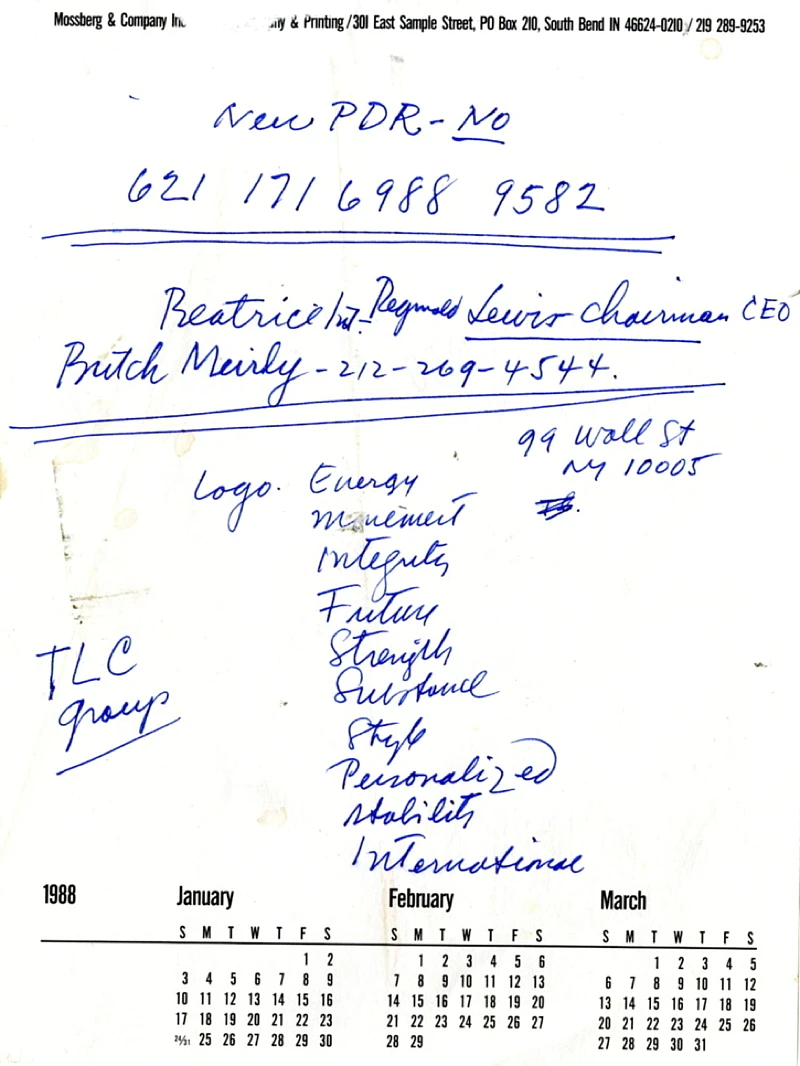 Mossberg & Company Inc & Printing / 301 East Sample Street, PO Box 210, South Bend IN 46624-0210 / 219 289-9253
New PDR - No
621 171 6988 9582
Beatrice Int - Reginald Lewis Chairman CEO
Butch Meirly - 212-269-4544.
99 Wall St
NY 10005
Logo. Energy
Movement
Integrity
Future
Strength
TLC
Substance
group
Style
Personalized
Stability
International
1988 January February March
S M T W T F S S M T W T F S S M T W T F S
1 2 1 2 3 4 5 6 1 2 3 4 5
3 4 5 6 7 8 9 7 8 9 10 11 12 13 6 7 8 9 10 11 12
10 11 12 13 14 15 16 14 15 16 17 18 19 20 13 14 15 16 17 18 19
17 18 19 20 21 22 23 21 22 23 24 25 26 27 20 21 22 23 24 25 26
24/31 25 26 27 28 29 30 28 29 27 28 29 30 31